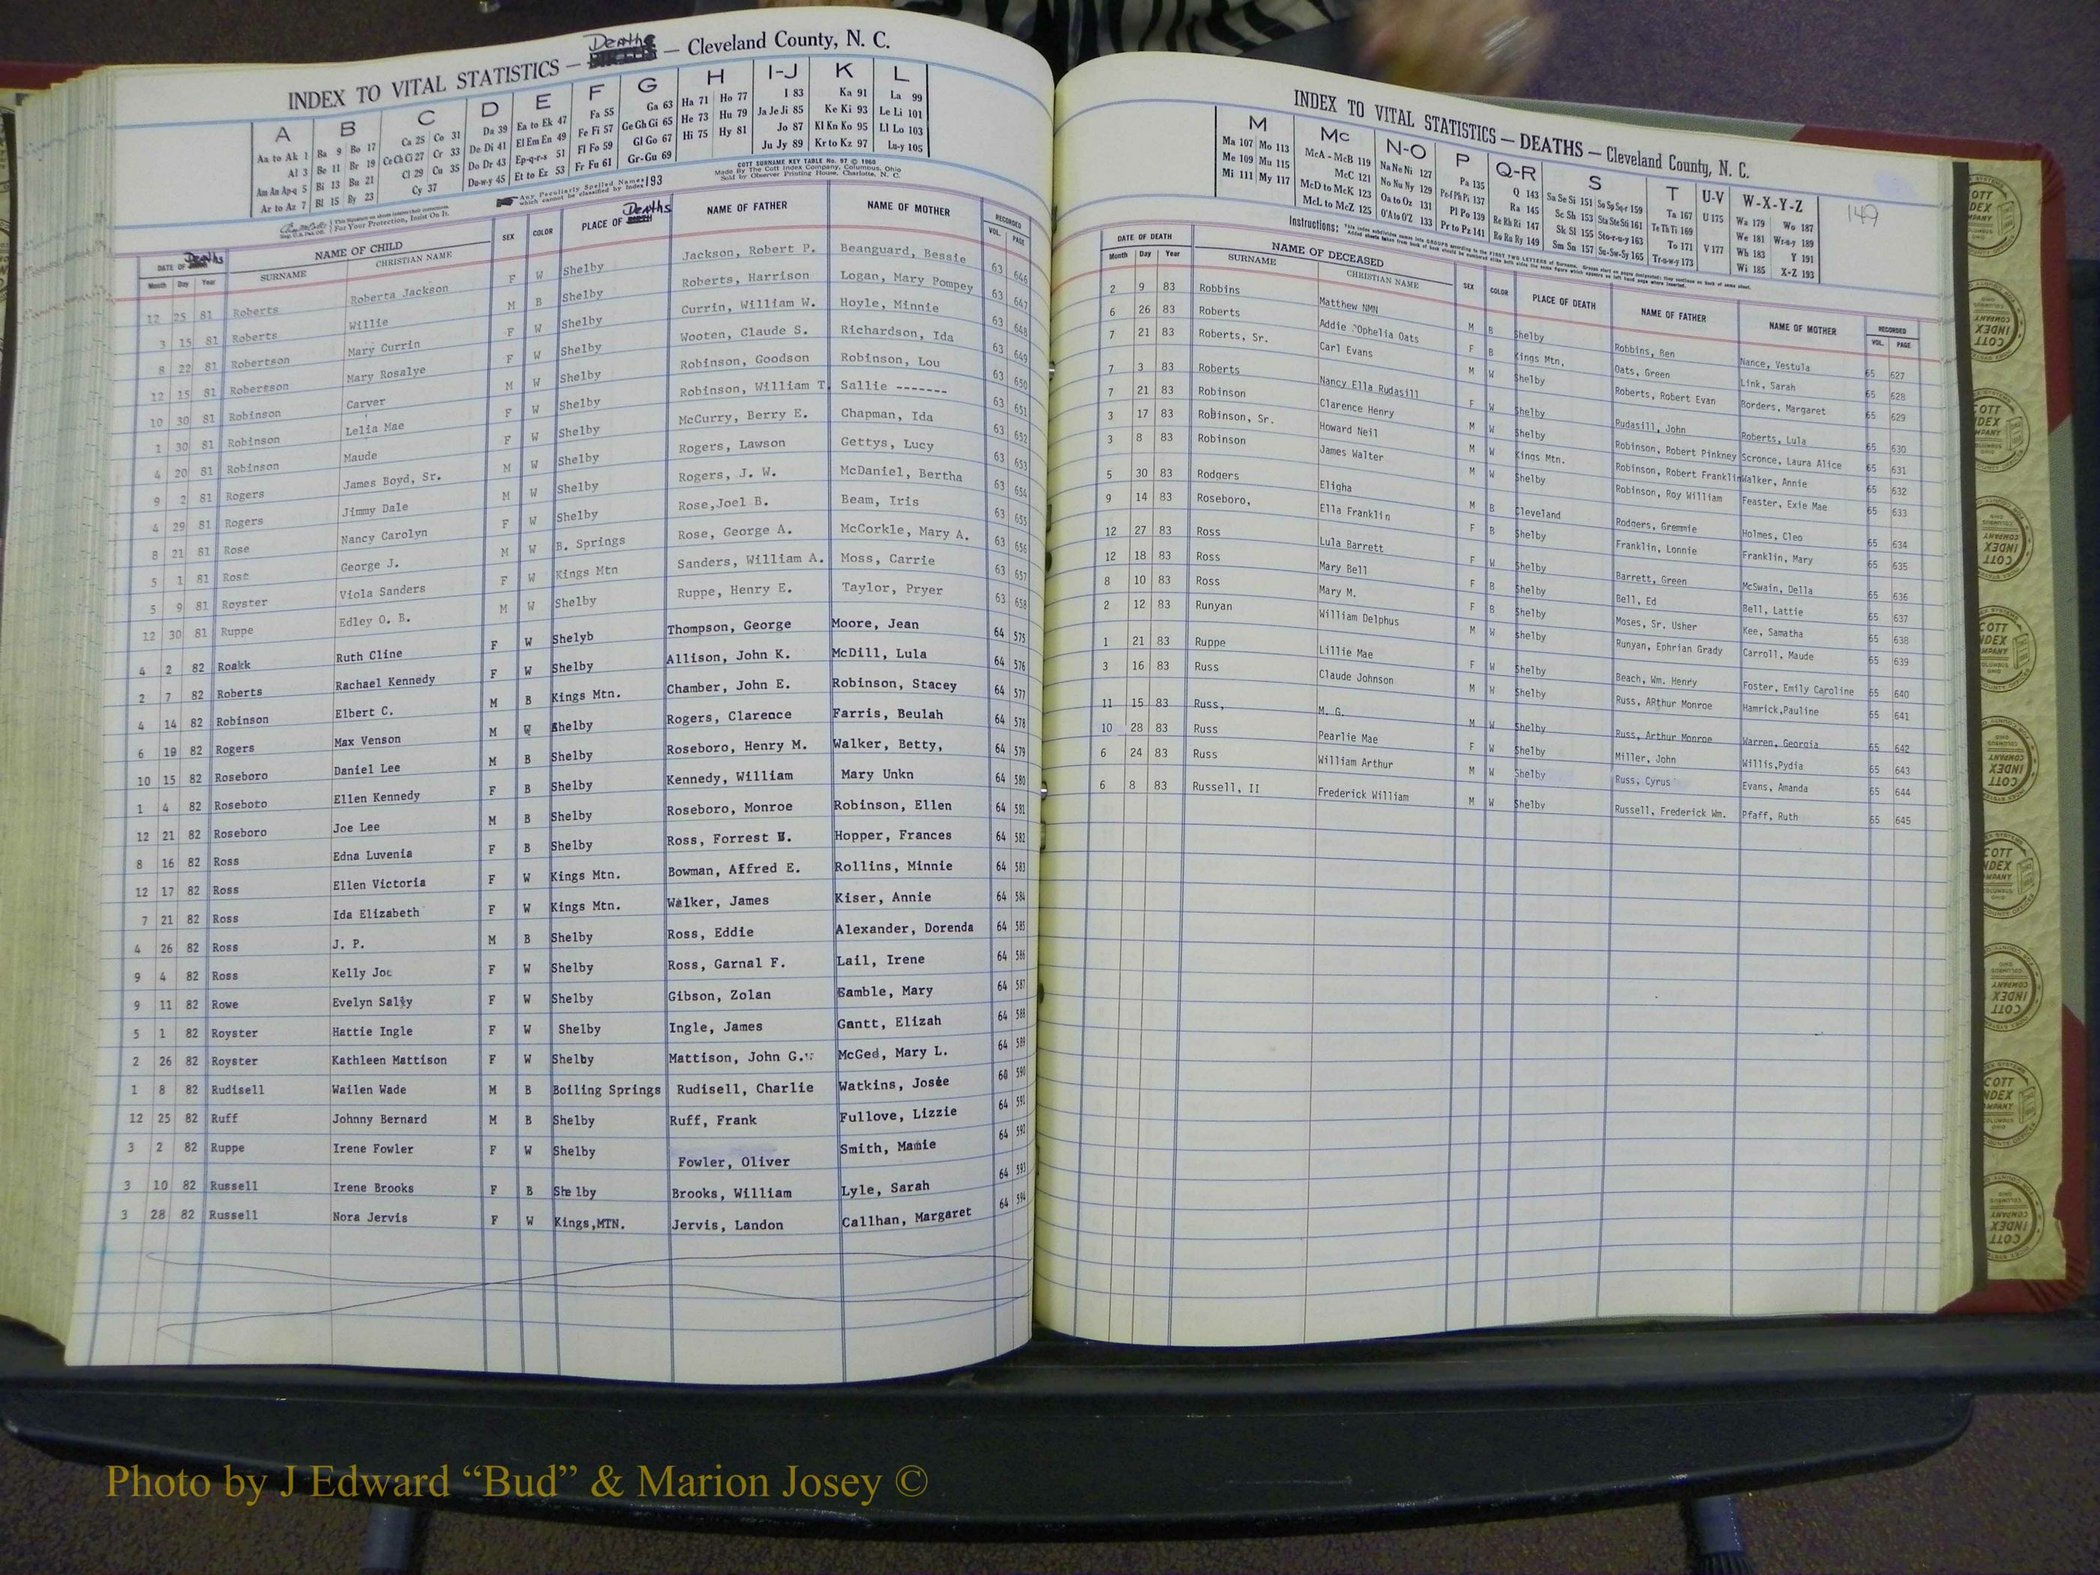 INDEX TO VITAL STATISTICS — Deaths — Cleveland County, N. C.
A B C D E F G H I-J K L
Aa to Ak 1 Ba 9 Bo 17 Ca 25 Co 31 Da 39 Ea to Ek 47 Fa 55 Ga 63 Ha 71 Ho 77 I 83 Ka 91 La 99
Al 3 Be 11 Br 19 Ce Ch Ci 27 Cr 33 De Di 41 El Em En 49 Fe Fi 57 Ge Gh Gi 65 He 73 Hu 79 Ja Je Ji 85 Ke Ki 93 Le Li 101
Am An Ap-q 5 Bi 13 Bu 21 Cl 29 Cu 35 Do Dr 43 Ep-q-r-s 51 Fl Fo 59 Gl Go 67 Hi 75 Hy 81 Jo 87 Kl Kn Ko 95 Ll Lo 103
Ar to Az 7 Bl 15 By 23 Cy 37 Du-w-y 45 Et to Ez 53 Fr Fu 61 Gr-Gu 69 Ju Jy 89 Kr to Kz 97 Lu-y 105
Any Peculiarly Spelled Names which cannot be classified by Index 193
COTT SURNAME KEY TABLE No. 97 © 1960
Made By The Cott Index Company, Columbus, Ohio
Sold by Observer Printing House, Charlotte, N. C.
For Your Protection, Insist On It.
DATE OF Deaths NAME OF CHILD SEX COLOR PLACE OF Deaths NAME OF FATHER NAME OF MOTHER RECORDED
Month Day Year SURNAME CHRISTIAN NAME VOL. PAGE
12 25 81 Roberts Roberta Jackson F W Shelby Jackson, Robert P. Beanguard, Bessie 63 646
3 15 81 Roberts Willie M B Shelby Roberts, Harrison Logan, Mary Pompey 63 647
8 22 81 Robertson Mary Currin F W Shelby Currin, William W. Hoyle, Minnie 63 648
12 15 81 Robertson Mary Rosalye F W Shelby Wooten, Claude S. Richardson, Ida 63 649
10 30 81 Robinson Carver M W Shelby Robinson, Goodson Robinson, Lou 63 650
1 30 81 Robinson Lelia Mae F W Shelby Robinson, William T. Sallie ------- 63 651
4 20 81 Robinson Maude F W Shelby McCurry, Berry E. Chapman, Ida 63 652
9 2 81 Rogers James Boyd, Sr. M W Shelby Rogers, Lawson Gettys, Lucy 63 653
4 29 81 Rogers Jimmy Dale M W Shelby Rogers, J. W. McDaniel, Bertha 63 654
8 21 81 Rose Nancy Carolyn F W Shelby Rose,Joel B. Beam, Iris 63 655
5 1 81 Rose George J. M W B. Springs Rose, George A. McCorkle, Mary A. 63 656
5 9 81 Royster Viola Sanders F W Kings Mtn Sanders, William A. Moss, Carrie 63 657
12 30 81 Ruppe Edley O. B. M W Shelby Ruppe, Henry E. Taylor, Pryer 63 658
4 2 82 Roakk Ruth Cline F W Shelyb Thompson, George Moore, Jean 64 575
2 7 82 Roberts Rachael Kennedy F W Shelby Allison, John K. McDill, Lula 64 576
4 14 82 Robinson Elbert C. M B Kings Mtn. Chamber, John E. Robinson, Stacey 64 577
6 19 82 Rogers Max Venson M W Shelby Rogers, Clarence Farris, Beulah 64 578
10 15 82 Roseboro Daniel Lee M B Shelby Roseboro, Henry M. Walker, Betty, 64 579
1 4 82 Roseboro Ellen Kennedy F B Shelby Kennedy, William Mary Unkn 64 580
12 21 82 Roseboro Joe Lee M B Shelby Roseboro, Monroe Robinson, Ellen 64 581
8 16 82 Ross Edna Luvenia F B Shelby Ross, Forrest W. Hopper, Frances 64 582
12 17 82 Ross Ellen Victoria F W Kings Mtn. Bowman, Alfred E. Rollins, Minnie 64 583
7 21 82 Ross Ida Elizabeth F W Kings Mtn. Walker, James Kiser, Annie 64 584
4 26 82 Ross J. P. M B Shelby Ross, Eddie Alexander, Dorenda 64 585
9 4 82 Ross Kelly Joe F W Shelby Ross, Garnal F. Lail, Irene 64 586
9 11 82 Rowe Evelyn Sally F W Shelby Gibson, Zolan Gamble, Mary 64 587
5 1 82 Royster Hattie Ingle F W Shelby Ingle, James Gantt, Elizah 64 588
2 26 82 Royster Kathleen Mattison F W Shelby Mattison, John G. McGed, Mary L. 64 589
1 8 82 Rudisell Wailen Wade M B Boiling Springs Rudisell, Charlie Watkins, Josie 60 590
12 25 82 Ruff Johnny Bernard M B Shelby Ruff, Frank Fullove, Lizzie 64 591
3 2 82 Ruppe Irene Fowler F W Shelby Fowler, Oliver Smith, Mamie 64 592
3 10 82 Russell Irene Brooks F B Shelby Brooks, William Lyle, Sarah 64 593
3 28 82 Russell Nora Jervis F W Kings,MTN. Jervis, Landon Callhan, Margaret 64 594
INDEX TO VITAL STATISTICS — DEATHS — Cleveland County, N. C.
149
M Mc N-O P Q-R S T U-V W-X-Y-Z
Ma 107 Mo 113 McA - McB 119 Na Ne Ni 127 Pa 135 Q 143 Sa Se Si 151 So Sp Sq-r 159 Ta 167 U 175 Wa 179 Wo 187
Me 109 Mu 115 McC 121 No Nu Ny 129 Pe-f Ph Pi 137 Ra 145 Sc Sh 153 Sta Ste Sti 161 Te Th Ti 169 We 181 Wr-u-y 189
Mi 111 My 117 McD to McK 123 Oa to Oz 131 Pl Po 139 Re Rh Ri 147 Sk Sl 155 Sto-r-u-y 163 To 171 V 177 Wh 183 Y 191
McL to McZ 125 O'A to O'Z 133 Pr to Pz 141 Ro Ru Ry 149 Sm Sn 157 Su-Sw-Sy 165 Tr-u-w-y 173 Wi 185 X-Z 193
Instructions:
DATE OF DEATH NAME OF DECEASED SEX COLOR PLACE OF DEATH NAME OF FATHER NAME OF MOTHER RECORDED
Month Day Year SURNAME CHRISTIAN NAME VOL. PAGE
2 9 83 Robbins Matthew NMN M B Shelby Robbins, Ben Nance, Vestula 65 627
6 26 83 Roberts Addie Ophelia Oats F B Kings Mtn. Oats, Green Link, Sarah 65 628
7 21 83 Roberts, Sr. Carl Evans M W Shelby Roberts, Robert Evan Borders, Margaret 65 629
7 3 83 Roberts Nancy Ella Rudasill F W Shelby Rudasill, John Roberts, Lula 65 630
7 21 83 Robinson Clarence Henry M W Shelby Robinson, Robert Pinkney Scronce, Laura Alice 65 631
3 17 83 Robinson, Sr. Howard Neil M W Kings Mtn. Robinson, Robert Franklin Walker, Annie 65 632
3 8 83 Robinson James Walter M W Shelby Robinson, Roy William Feaster, Exie Mae 65 633
5 30 83 Rodgers Eligha M B Cleveland Rodgers, Gremmie Holmes, Cleo 65 634
9 14 83 Roseboro, Ella Franklin F B Shelby Franklin, Lonnie Franklin, Mary 65 635
12 27 83 Ross Lula Barrett F W Shelby Barrett, Green McSwain, Della 65 636
12 18 83 Ross Mary Bell F B Shelby Bell, Ed Bell, Lattie 65 637
8 10 83 Ross Mary M. F B Shelby Moses, Sr. Usher Kee, Samatha 65 638
2 12 83 Runyan William Delphus M W Shelby Runyan, Ephrian Grady Carroll, Maude 65 639
1 21 83 Ruppe Lillie Mae F W Shelby Beach, Wm. Henry Foster, Emily Caroline 65 640
3 16 83 Russ Claude Johnson M W Shelby Russ, ARthur Monroe Hamrick,Pauline 65 641
11 15 83 Russ, M. G. M W Shelby Russ, Arthur Monroe Warren, Georgia 65 642
10 28 83 Russ Pearlie Mae F W Shelby Miller, John Willis,Pydia 65 643
6 24 83 Russ William Arthur M W Shelby Russ, Cyrus Evans, Amanda 65 644
6 8 83 Russell, II Frederick William M W Shelby Russell, Frederick Wm. Pfaff, Ruth 65 645
Photo by J Edward “Bud” & Marion Josey ©